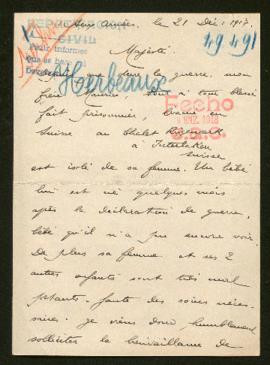 Aux Armées, le 21 Déc. 1917.
49491
CIVIL
Pedir informes
Herbeaux
Majesté
la guerre, mon
frère Maurice
Fecho
ENE. 1918
fait prisonnier, interné en
Suisse au Chalet
à Interlaken
Suisse
est isolé de sa femme. Un bébé
lui est né quelques mois
après la déclaration de guerre,
bébé qu'il n'a pu encore voir.
De plus sa femme et ses 2
autres enfants sont très mal
portants, faute des soins néces-
saires. Je viens donc humblement
solliciter la bienveillance de